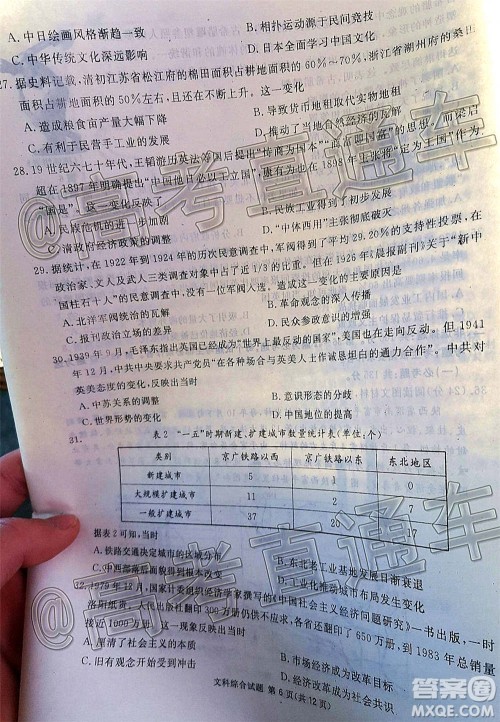 A.中日绘画风格渐趋一致 B.相扑运动源于民间竞技
C.中华传统文化深远影响 D.日本全面学习中国文化
27.据史料记载,清初江苏省松江府的棉田面积占耕地面积的60%~70%,浙江省湖州府的桑田
面积占耕地面积的50%左右,且还在不断上升。这一变化
A.造成粮食亩产量大幅下降 B.导致货币地租取代实物地租
C.有利于民营手工业的发展 D.推动了
28.19世纪六七十年代,王韬游历英法等国后提出“恃商为国本”“商富即国富”的思想。
超在1897年明确提出“中国他日必以工立国”,康有为也在1898年主张将“定为工国”作为
“国是”。这一变化反映了
A.民族危机的进一步加剧 B.民族工业得到了初步发展
C.清政府经济政策的调整 D.“中体西用”主张彻底破灭
29.据统计,在1922年到1924年的历次民意调查中,军阀得到了平均29.20%的支持性投票,在
政治家、文人及武人三类调查对象中占了近1/3的比重。但在1926年《晨报副刊》关于“新中
国柱石十人”的民意调查中,没有一位军阀入选。造成这一变化的主要原因是
A.北洋军阀统治的瓦解 B.革命观念的深入传播
C.报刊政治立场的差异 D.民众参政意识的增强
30.1939年9月,毛泽东指出英国已经成为“世界上最反动的国家”,美国也在走向反动。但1941
年12月,中共中央要求共产党员“在各种场合与英美人士作诚恳坦白的通力合作”。中共对
英美态度的变化,反映出当时
A.中苏关系的调整 B.意识形态的分歧
C.世界形势的变化 D.中国地位的提高
31. 表2 “一五”时期新建、扩建城市数量统计表(单位:个)
类别 京广铁路以西 京广铁路以东 东北地区
新建城市 5 1 0
大规模扩建城市 11 2 7
一般扩建城市 37 20 17
据表2可知,当时
A.铁路交通决定城市的区域分布 B.东北老工业基地发展日渐衰退
C.中西部落后面貌得到根本改变 D.工业化推动城市布局发生变化
32.1979年12月,国家计委组织经济学家撰写的《中国社会主义经济问题研究》一书出版,一时
洛阳纸贵。人民出版社翻印300万册仍供不应求,各省份翻印了650万册,到1983年总销量
接近1000万册。这一现象反映出当时
A.厘清了社会主义的本质 B.市场经济成为改革目标
C.旧有观念开始受到冲击 D.经济体制改革成为社会共识
文科综合试题 第6页(共12页)
高考直通车
高考直通车
答案圈
MXQE.COM